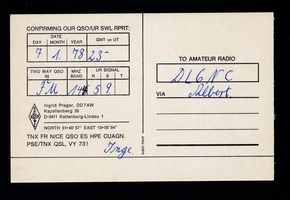 CONFIRMING OUR QSO/UR SWL RPRT:
DATE
DAY MONTH YEAR GMT or UT
7 1. 78 23-
TWO WAY QSO IN MHZ BAND UR SIGNAL R S T
FM 144 5 9
Ingrid Prager, DD7AW
Kapellenberg 26
D-3411 Katlenburg-Lindau 1
NORTH 51°40'57" EAST 10°05'54"
TNX FR NICE QSO ES HPE CUAGN.
PSE/TNX QSL, VY 73! Inge.
TO AMATEUR RADIO
DL6NC
VIA Albert.